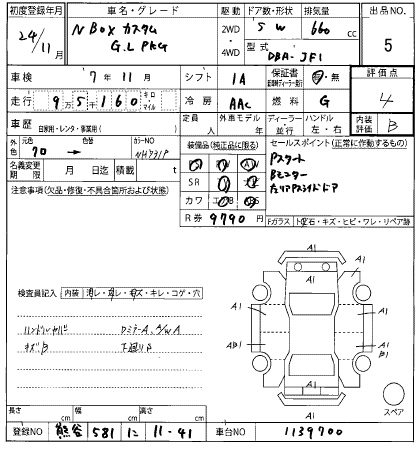 初度登録年月
24/11月
車名・グレード
N BOX カスタム
G.L PKG
駆動
2WD
4WD
ドア数・形状
5 W
排気量
660 cc
型式
DBA-JF1
出品NO.
5
車検
7年11月
シフト
IA
保証書
有・無
評価点
4
走行
9万5千160
キロ
マイル
冷房
AAC
燃料
G
車歴
自家用・レンタ・事業用( )
定員
人
外車モデル
年
ディーラー
並行
ハンドル
左・右
内装
評価
B
外色
元色
70
→
カラーNO
NH731P
装備品(純正品に限る)
セールスポイント(正常に作動するもの)
名義変更
期限
月 日迄
積載
t
SR
カワ
Pスタート
Bモニター
左リアPスライドドア
注意事項(欠品・修復・不具合箇所および状態)
R券
9790 円
Fガラス
検査員記入
内装
キレ・コゲ・穴
A1
A1
A1
A1
A1
AB1
A1
B1
A1
A1
ハンドルヤセB
キズB
下廻りP
スペア
長さ
cm
幅
cm
高さ
cm
登録NO
熊谷
581
に
11-41
車台NO
1139700